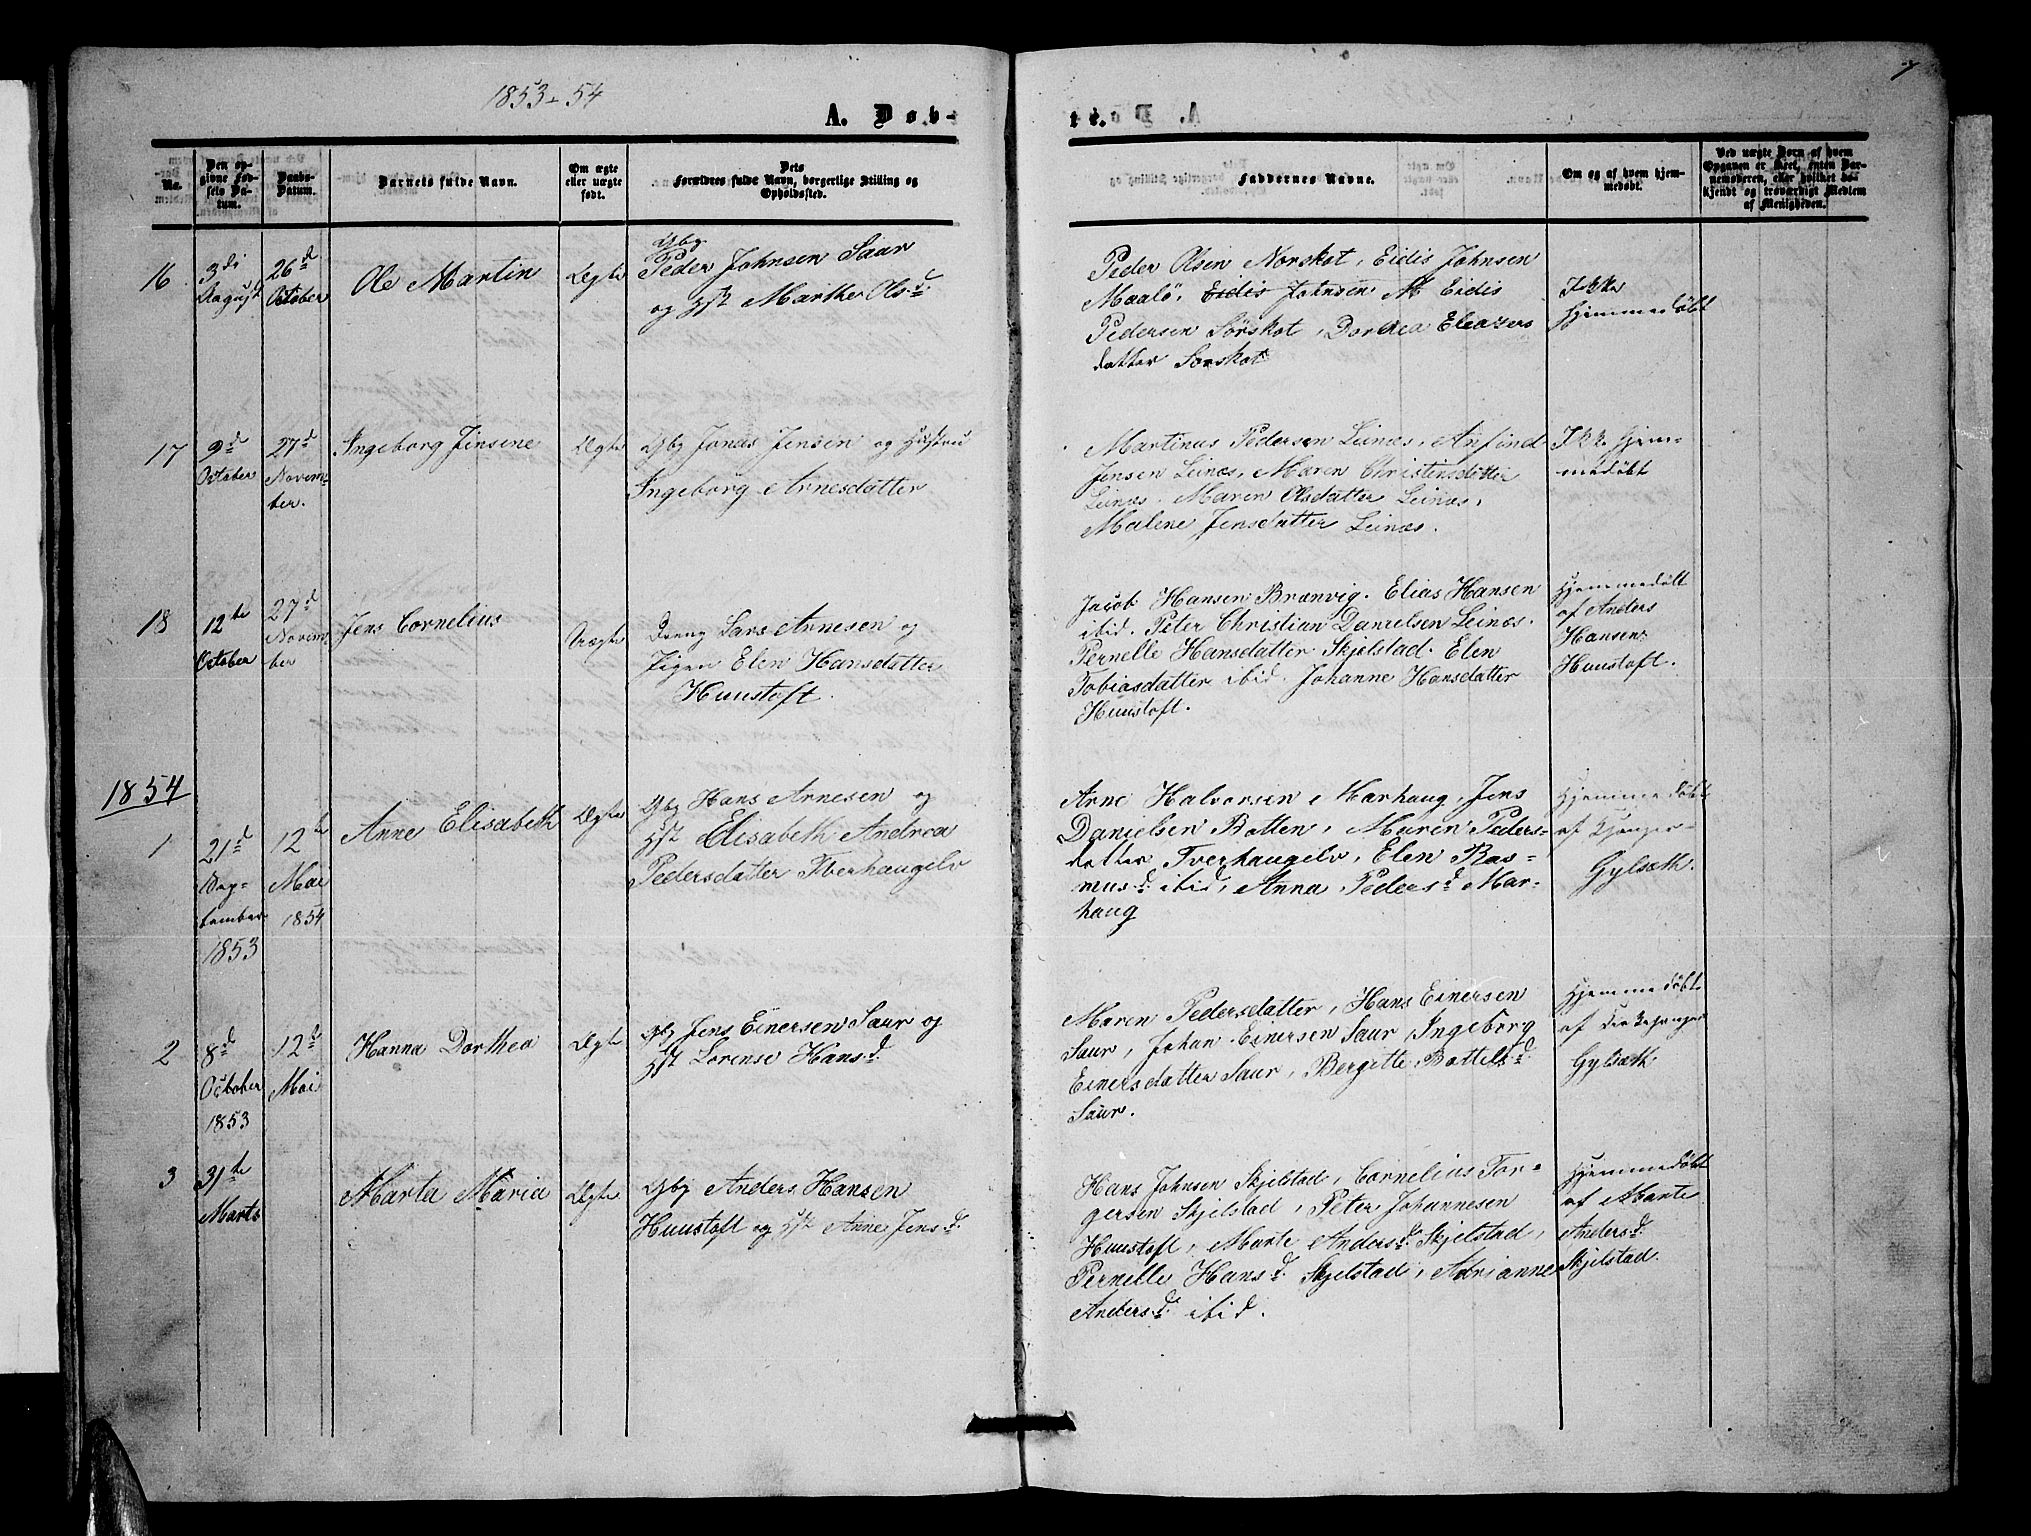 1853-54
7
A. Døb-
te.
No.
Den op-
givne Fød-
sels Da-
tum.
Daabs-
Datum.
Barnets fulde Navn.
Om ægte
eller uægte
født.
Dets
Forældres fulde Navn, borgerlige Stilling og
Opholdssted.
Faddernes Navne.
Om og af hvem hjem-
medøbt.
Ved uægte Børn af hvem
Opgaven er skeet, enten Bar-
nemoderen, eller hvilket be-
kjendt og troværdigt Medlem
af Menigheden.
16
3di
August
26d
October
Ole Martin
Ægte
Gbg
Peder Johnsen Saur
og Hst Marthe Olsd.
Peder Olsen Norskot, Eidis Johnsen
Maalö, Eidis Johnsen M Eidis
Pedersen Sörskot, Dorthea Eleazers
datter Sorskot
Ikke
Hjemmedöbt
17
9d
October
27d
Novem-
ber.
Ingeborg Jensine
Ægte
Gbg Jonas Jensen og Hustru
Ingeborg Arnesdatter
Martinus Pedersen Leinæs, Anfind
Jensen Leinæs, Maren Christinsdatter
Leinæs. Maren Olsdatter Leinæs,
Malene Jensdatter Leinæs.
Ikke Hjem-
medöbt
18
12te
October
27d
Novem-
ber
Jens Cornelius
Uægte
Dreng Lars Arnesen og
Pigen Elen Hansdatter
Huustoft.
Jacob Hansen Brænvig. Elias Hansen
ibid. Peter Christian Danielsen Leinæs.
Pernelle Hansdatter Skjelstad. Elen
Tobiasdatter ibid. Johanne Hansdatter
Huustoft.
Hjemmedöbt
af Anders
Hansen
Huustoft.
1854
1
21d
Sep-
tember
1853
12te
Mai
1854
Anne Elisabeth
Ægte
Gbg Hans Arnesen og
Hst Elisabeth Andrea
Pedersdatter Tverhaugelv
Arne Halvorsen Marhaug, Jens
Danielsen Botten, Maren Peders-
datter Tverhaugelv, Elen Ras-
musd. ibid, Anna Pedersd. Mar-
haug
Hjemmedöbt
af
Gylseth.
2
8d
October
1853
12d
Mai
Hanna Dorthea
Ægte
Gbg Jens Einersen Saur og
Hst Lorense Hansd.
Maren Pedersdatter, Hans Einersen
Saur, Johan Einersen Saur, Ingeborg
Einersdatter Saur, Bergitte Bottelsd.
Saur.
Hjemmedöbt
af
Gylseth
3
31te
Marts
Marta Maria
Ægte
Gbg Anders Hansen
Huustoft og Hst Anne Jensd.
Hans Johnsen Skjelstad, Cornelius Tor-
gersen Skjelstad, Peter Johannesen
Huustoft, Marte Andersd. Skjelstad,
Pernelle Hansd. Skjelstad, Adrianne
Andersd. ibid.
Hjemmedöbt
af Marte
Andersd.
Skjelstad.